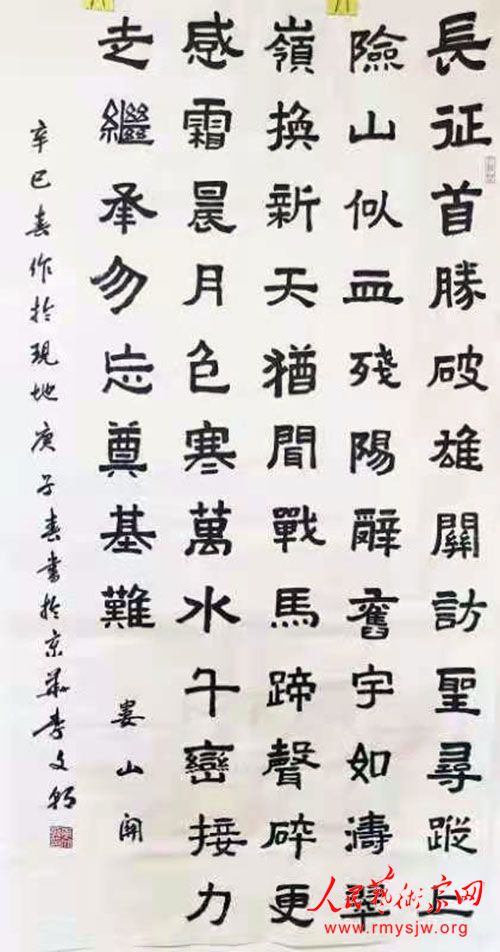 長征首勝破雄關訪聖尋蹤上
險山似血殘陽辭舊宇如濤翠
嶺換新天猶聞戰馬蹄聲碎更
感霜晨月色寒萬水千巒接力
走繼承勿忘奠基難 婁山関
辛巳春作於現地庚子春書於京華李文朝
人民藝術家网
www.rmysjw.org